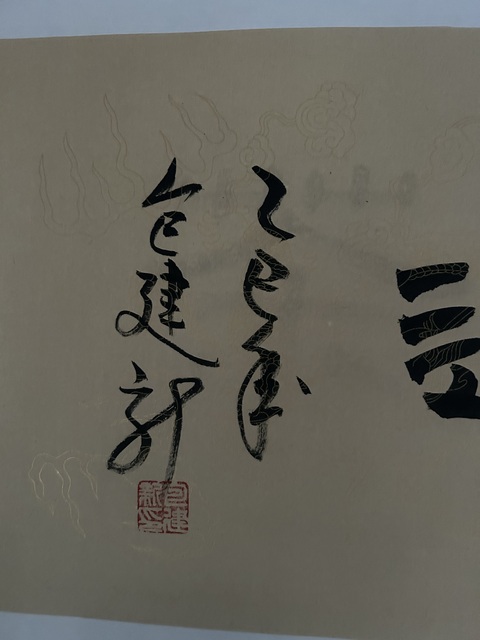 乙巳年
包建新
包建
新印